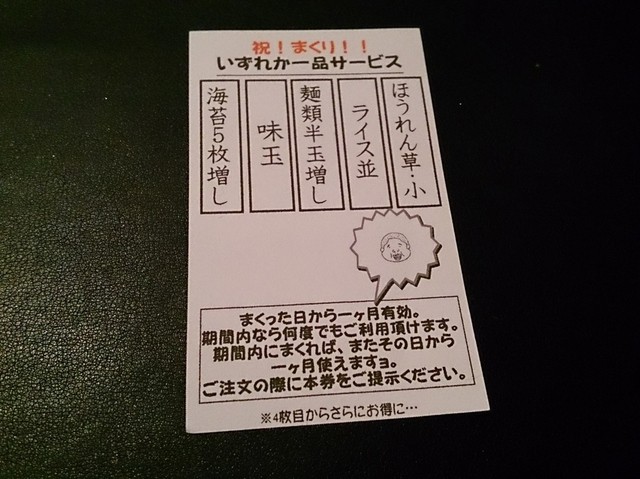 祝！まくり！！
いずれか一品サービス
ほうれん草・小
ライス並
麺類半玉増し
味玉
海苔5枚増し
まくった日から一ヶ月有効。
期間内なら何度でもご利用頂けます。
期間内にまくれば、またその日から
一ヶ月使えますョ。
ご注文の際に本券をご提示ください。
※4枚目からさらにお得に…